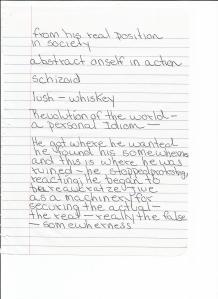 from his real position
in society
abstract onself in action
schizoid
lush – whiskey
Revolution of the world –
a personal Idiom –
He got where he wanted
he found his somewherness
and this is where he was
ruined – he stopped protesting,
reacting; he began to
bureaucratize
as a machinery for
securing the actual –
the real – really the false
– somewherness